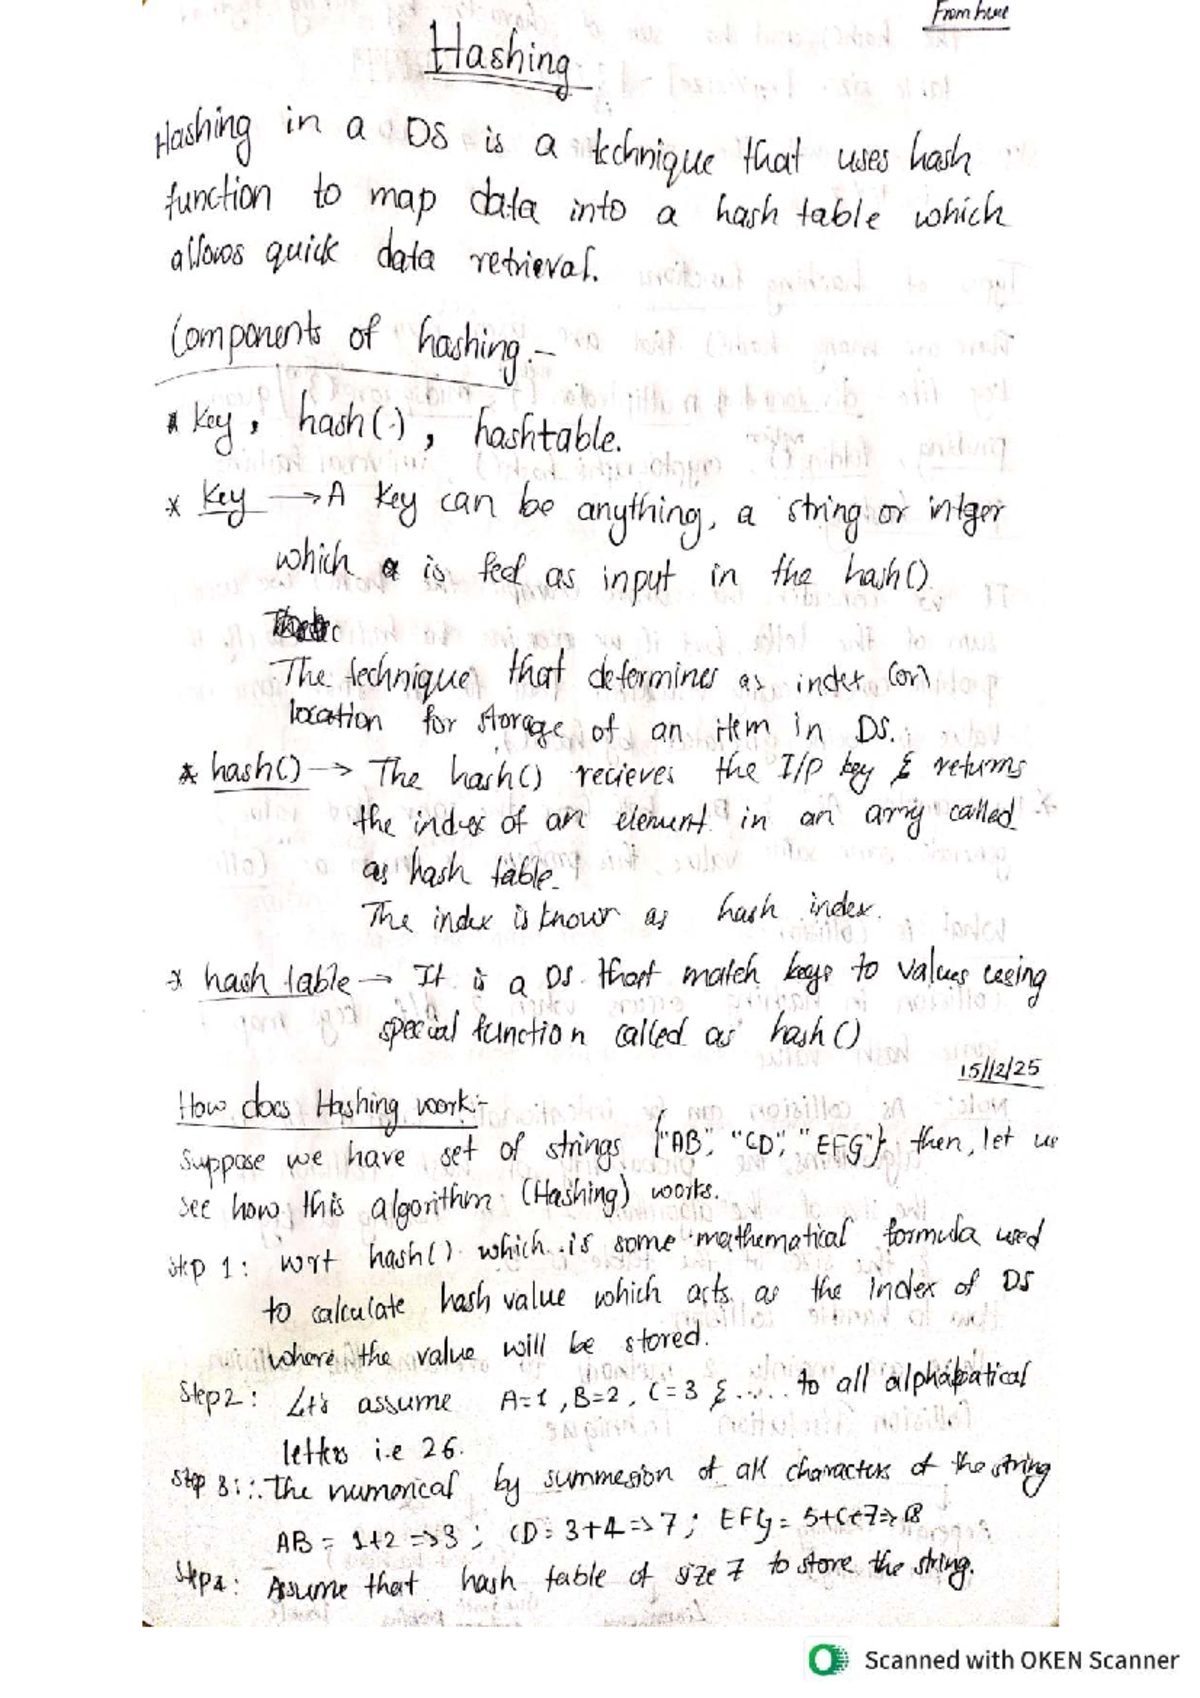 From here
Hashing
Hashing in a DS is a technique that uses hash
function to map data into a hash table which
allows quick data retrieval.
Components of hashing :-
* Key, hash(), hashtable.
* Key → A key can be anything, a string or intger
which is fed as input in the hash()
The technique that determines as index (or)
location for storage of an item in DS.
* hash() → The hash() recieves the I/P key & returns
the index of an element in an array called
as hash table.
The index is known as hash index.
* hash table → It is a DS that match keys to values using
special function called as hash()
15/12/25
How does Hashing work:-
Suppose we have set of strings {"AB", "CD", "EFG"} then, let us
see how this algorithm (Hashing) works.
Step 1: wrt hash() which is some mathematical formula used
to calculate hash value which acts as the index of DS
where the value will be stored.
Step2: Let's assume A=1, B=2, C=3 & ..... to all alphabatical
letters i.e 26.
Step 3: ∴ The numerical by summesion of all characters of the string
AB = 1+2 => 3 ; CD = 3+4 => 7 ; EFG = 5+6+7 => 18
Step4: Assume that hash table of size 7 to store the string.
Scanned with OKEN Scanner